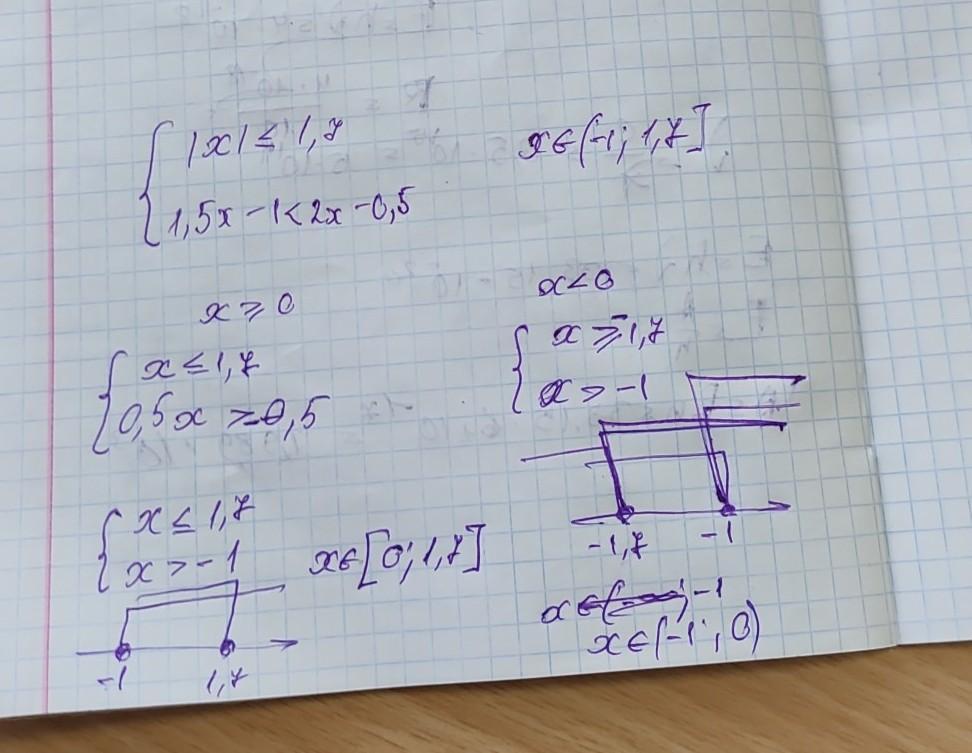 |x| ≤ 1,7
1,5x - 1 < 2x - 0,5
x ∈ (-1; 1,7]
x ≥ 0
x ≤ 1,7
0,5x > -0,5
x ≤ 1,7
x > -1
x ∈ [0; 1,7]
-1 1,7
x < 0
x ≥ -1,7
x > -1
-1,7 -1
x ∈ ; -1
x ∈ (-1; 0)